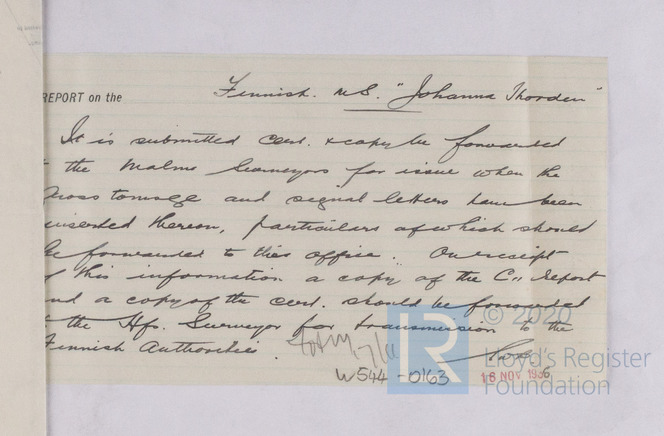 REPORT on the Finnish. M.S. "Johanna Thorden"
It is submitted cert. & copy be forwarded
the Malmo Surveyors for issue when the
ross tonnage and signal letters have been
inserted thereon, particulars of which should
be forwarded to this office. On receipt
of this information a copy of the C.11 Report
nd a copy of the cert. should be forwarded
the Hfs. Surveyor for transmission to the
Finnish Authorities.
W544-0163
18 NOV 1936
© 2020
LR
Lloyd's Register
Foundation